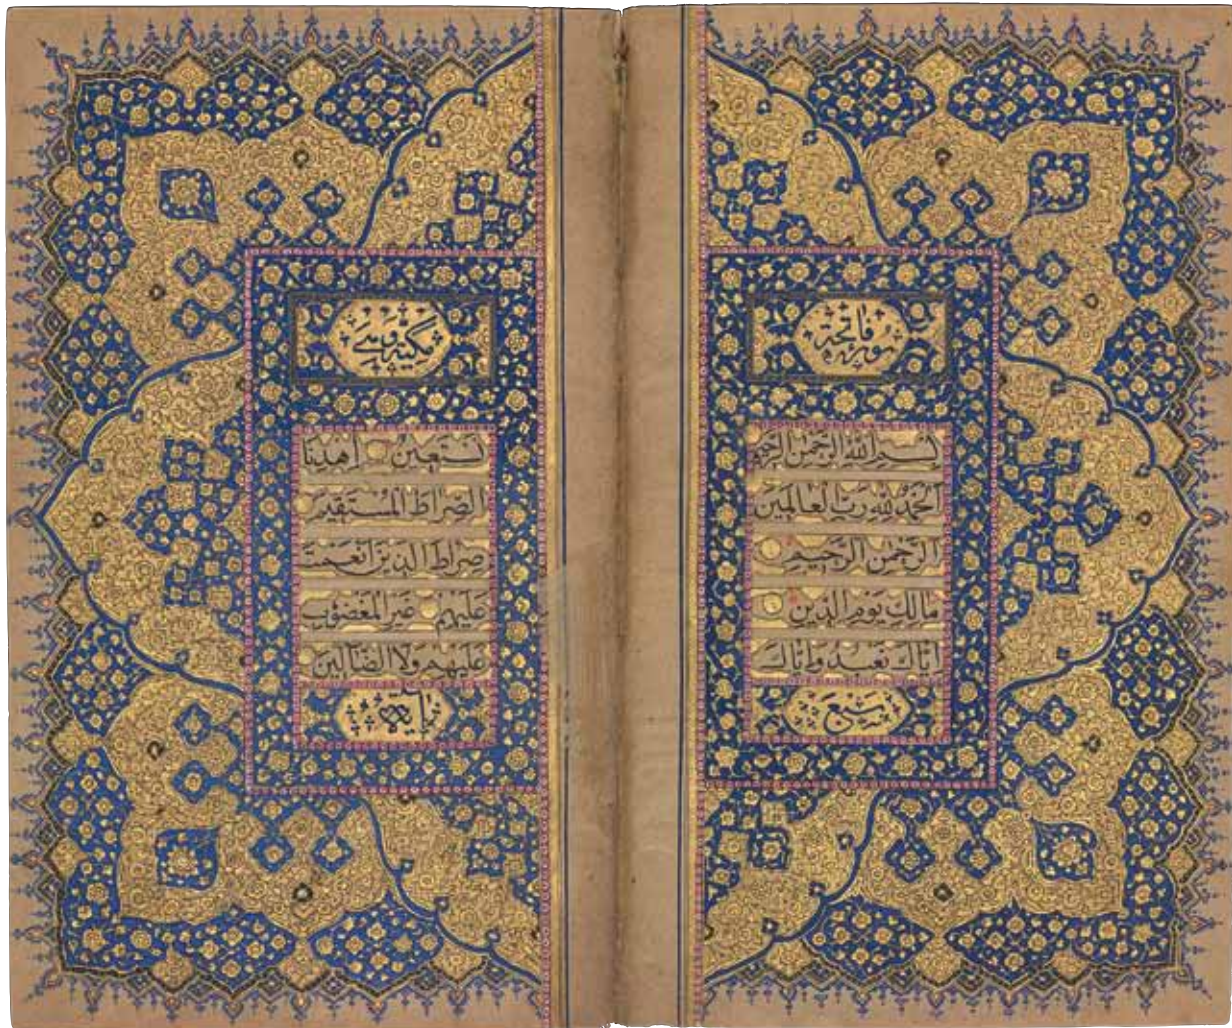 سورة فاتحة
بسم الله الرحمن الرحيم
الحمد لله رب العالمين
الرحمن الرحيم
مالك يوم الدين
اياك نعبد واياك
سبع
مكية وهي
نستعين اهدنا
الصراط المستقيم
صراط الذين انعمت
عليهم غير المغضوب
عليهم ولا الضالين